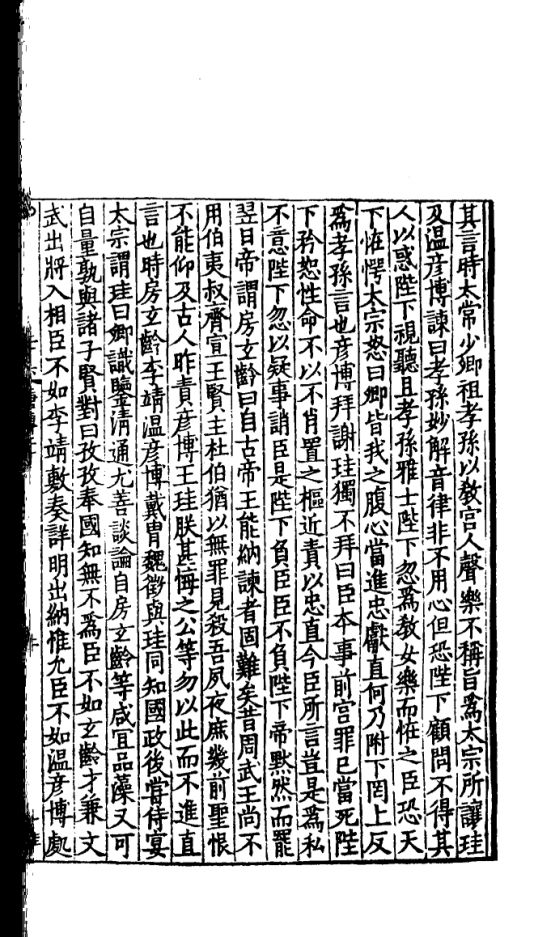 其言時太常少卿祖孝孫以敎宫人聲樂不稱旨爲太宗所讓珪
及温彦博諫曰孝孫妙解音律非不用心但恐陛下顧問不得其
人以惑陛下視聽且孝孫雅士陛下忽爲敎女樂而恠之臣恐天
下恠愕太宗怒曰卿皆我之腹心當進忠獻直何乃附下罔上反
爲孝孫言也彦博拜謝珪獨不拜曰臣本事前宫罪已當死陛
下矜恕性命不以不肖置之樞近責以忠直今臣所言豈是爲私
不意陛下忽以疑事誚臣是陛下負臣臣不負陛下帝默然而罷
翌日帝謂房玄齡曰自古帝王能納諫者固難矣昔周武王尚不
用伯夷叔齊宣王賢主杜伯猶以無罪見殺吾夙夜庶幾前聖恨
不能仰及古人昨責彦博王珪朕甚悔之公等勿以此而不進直
言也時房玄齡李靖温彦博戴胄魏徵與珪同知國政後嘗侍宴
太宗謂珪曰卿識鑒清通尤善談論自房玄齡等咸宜品藻又可
自量孰與諸子賢對曰孜孜奉國知無不爲臣不如玄齡才兼文
武出將入相臣不如李靖敷奏詳明出納惟允臣不如温彦博處